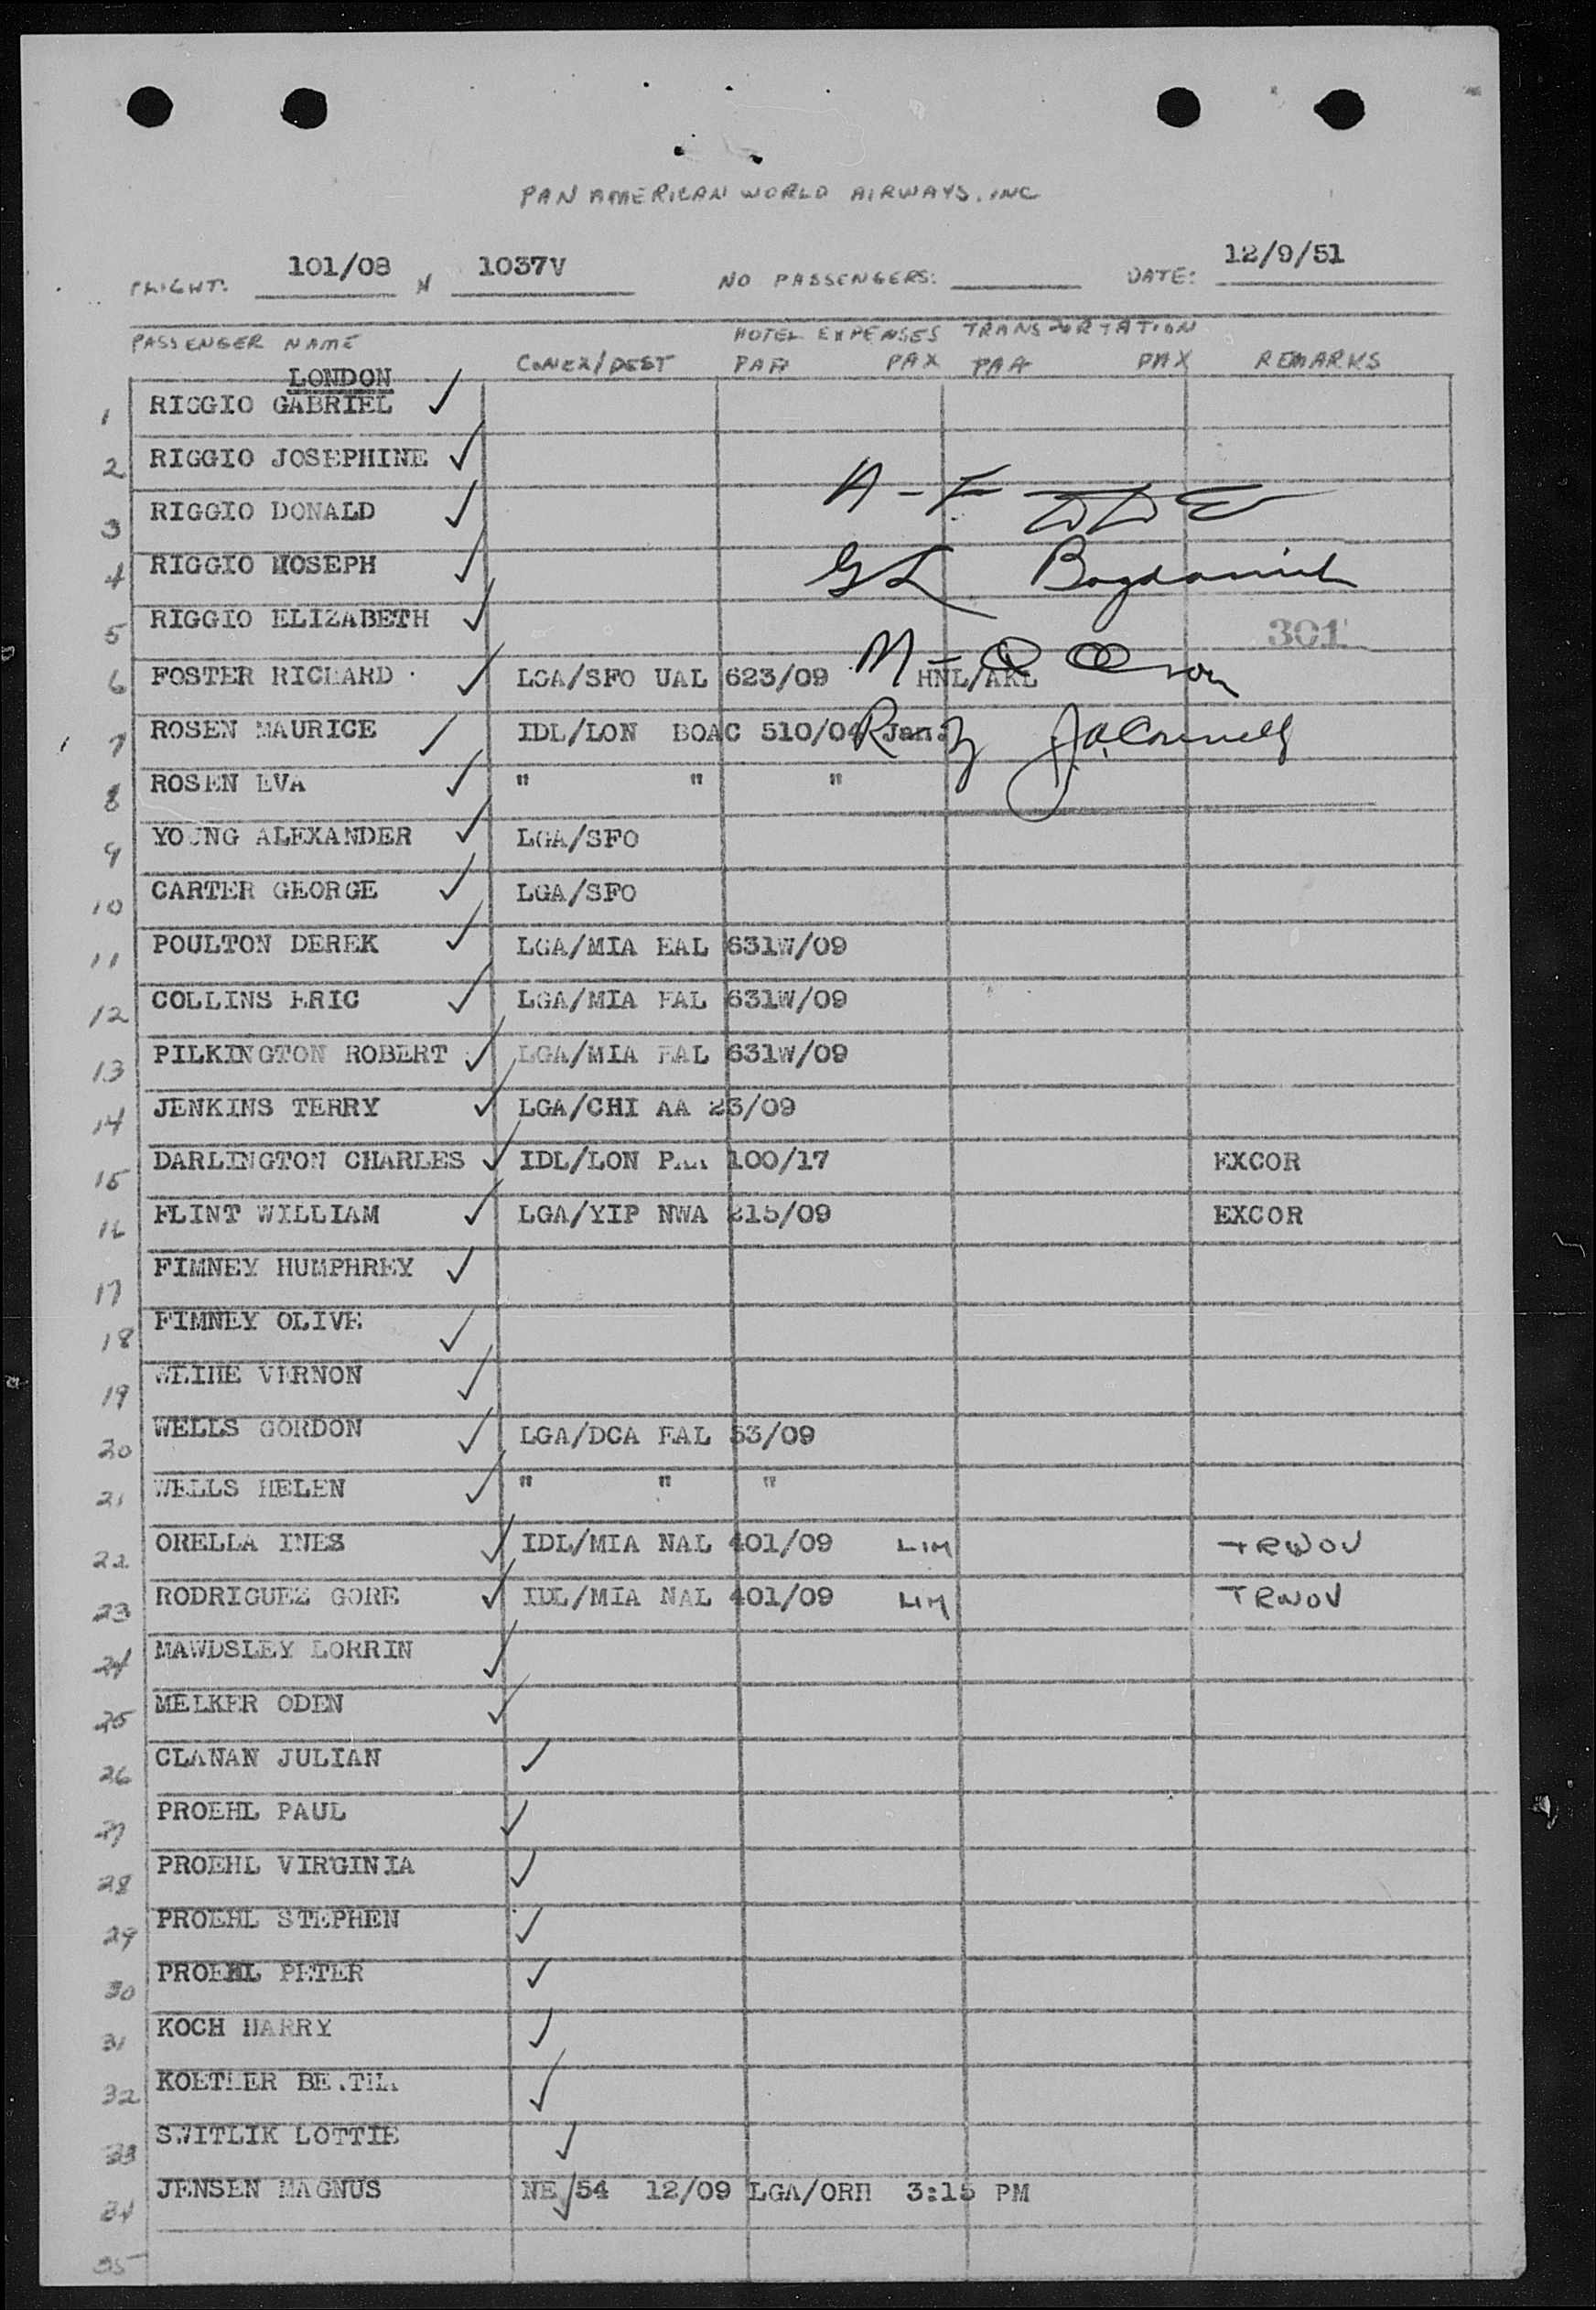 PAN AMERICAN WORLD AIRWAYS, INC
FLIGHT: 101/08 N 1037V NO PASSENGERS: DATE: 12/9/51
HOTEL EXPENSES TRANSPORTATION
PASSENGER NAME CONEX/DEST PAA PAX PAA PAX REMARKS
LONDON
1 RIGGIO GABRIEL
2 RIGGIO JOSEPHINE
3 RIGGIO DONALD
4 RIGGIO MOSEPH
5 RIGGIO ELIZABETH
301
6 FOSTER RICHARD LGA/SFO UAL 623/09 HNL/AKL
7 ROSEN MAURICE IDL/LON BOAC 510/04 Jan.
8 ROSEN EVA " " "
9 YOUNG ALEXANDER LGA/SFO
10 CARTER GEORGE LGA/SFO
11 POULTON DEREK LGA/MIA EAL 631W/09
12 COLLINS ERIC LGA/MIA EAL 631W/09
13 PILKINGTON ROBERT LGA/MIA EAL 631W/09
14 JENKINS TERRY LGA/CHI AA 23/09
15 DARLINGTON CHARLES IDL/LON PAA 100/17 EXCOR
16 FLINT WILLIAM LGA/YIP NWA 215/09 EXCOR
17 FIMNEY HUMPHREY
18 FIMNEY OLIVE
19 VERNON
20 WELLS GORDON LGA/DCA EAL 53/09
21 WELLS HELEN " " "
22 ORELLA INES IDL/MIA NAL 401/09 LIM TRWOV
23 RODRIGUEZ GORE IDL/MIA NAL 401/09 LIM TRWOV
24 MAWDSLEY LORRIN
25 MELKER ODEN
26 CLANAN JULIAN
27 PROEHL PAUL
28 PROEHL VIRGINIA
29 PROEHL STEPHEN
30 PROEHL PETER
31 KOCH HARRY
32
33 SWITLIK LOTTIE
34 JENSEN MAGNUS NE 54 12/09 LGA/ORH 3:15 PM
35